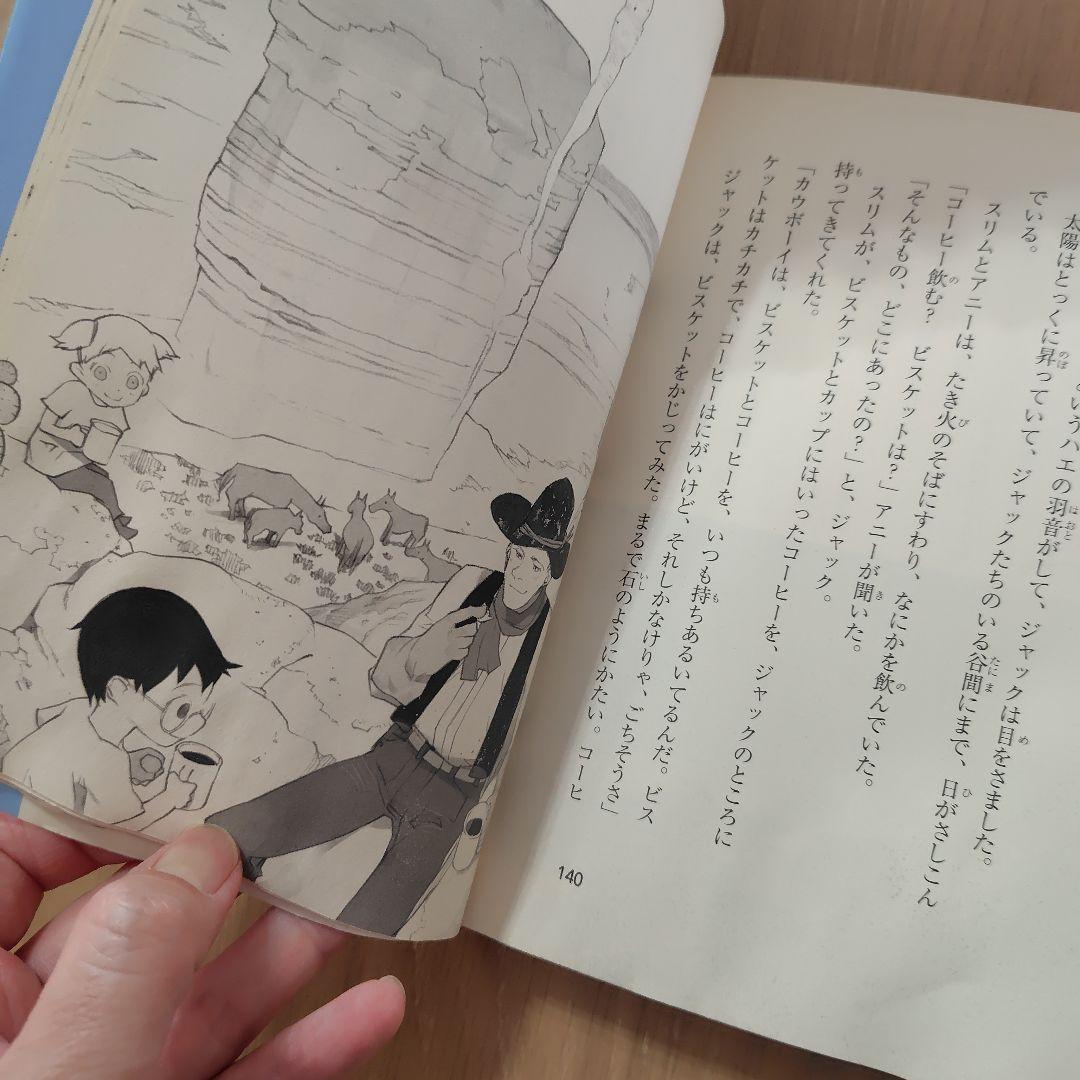 というハエの羽音がして、ジャックは目をさました。
太陽はとっくに昇っていて、ジャックたちのいる谷間にまで、日がさしこん
でいる。
スリムとアニーは、たき火のそばにすわり、なにかを飲んでいた。
「コーヒー飲む？　ビスケットは？」アニーが聞いた。
「そんなもの、どこにあったの？」と、ジャック。
スリムが、ビスケットとカップにはいったコーヒーを、ジャックのところに
持ってきてくれた。
「カウボーイは、ビスケットとコーヒーを、いつも持ちあるいてるんだ。ビス
ケットはカチカチで、コーヒーはにがいけど、それしかなけりゃ、ごちそうさ」
ジャックは、ビスケットをかじってみた。まるで石のようにかたい。コーヒ
140